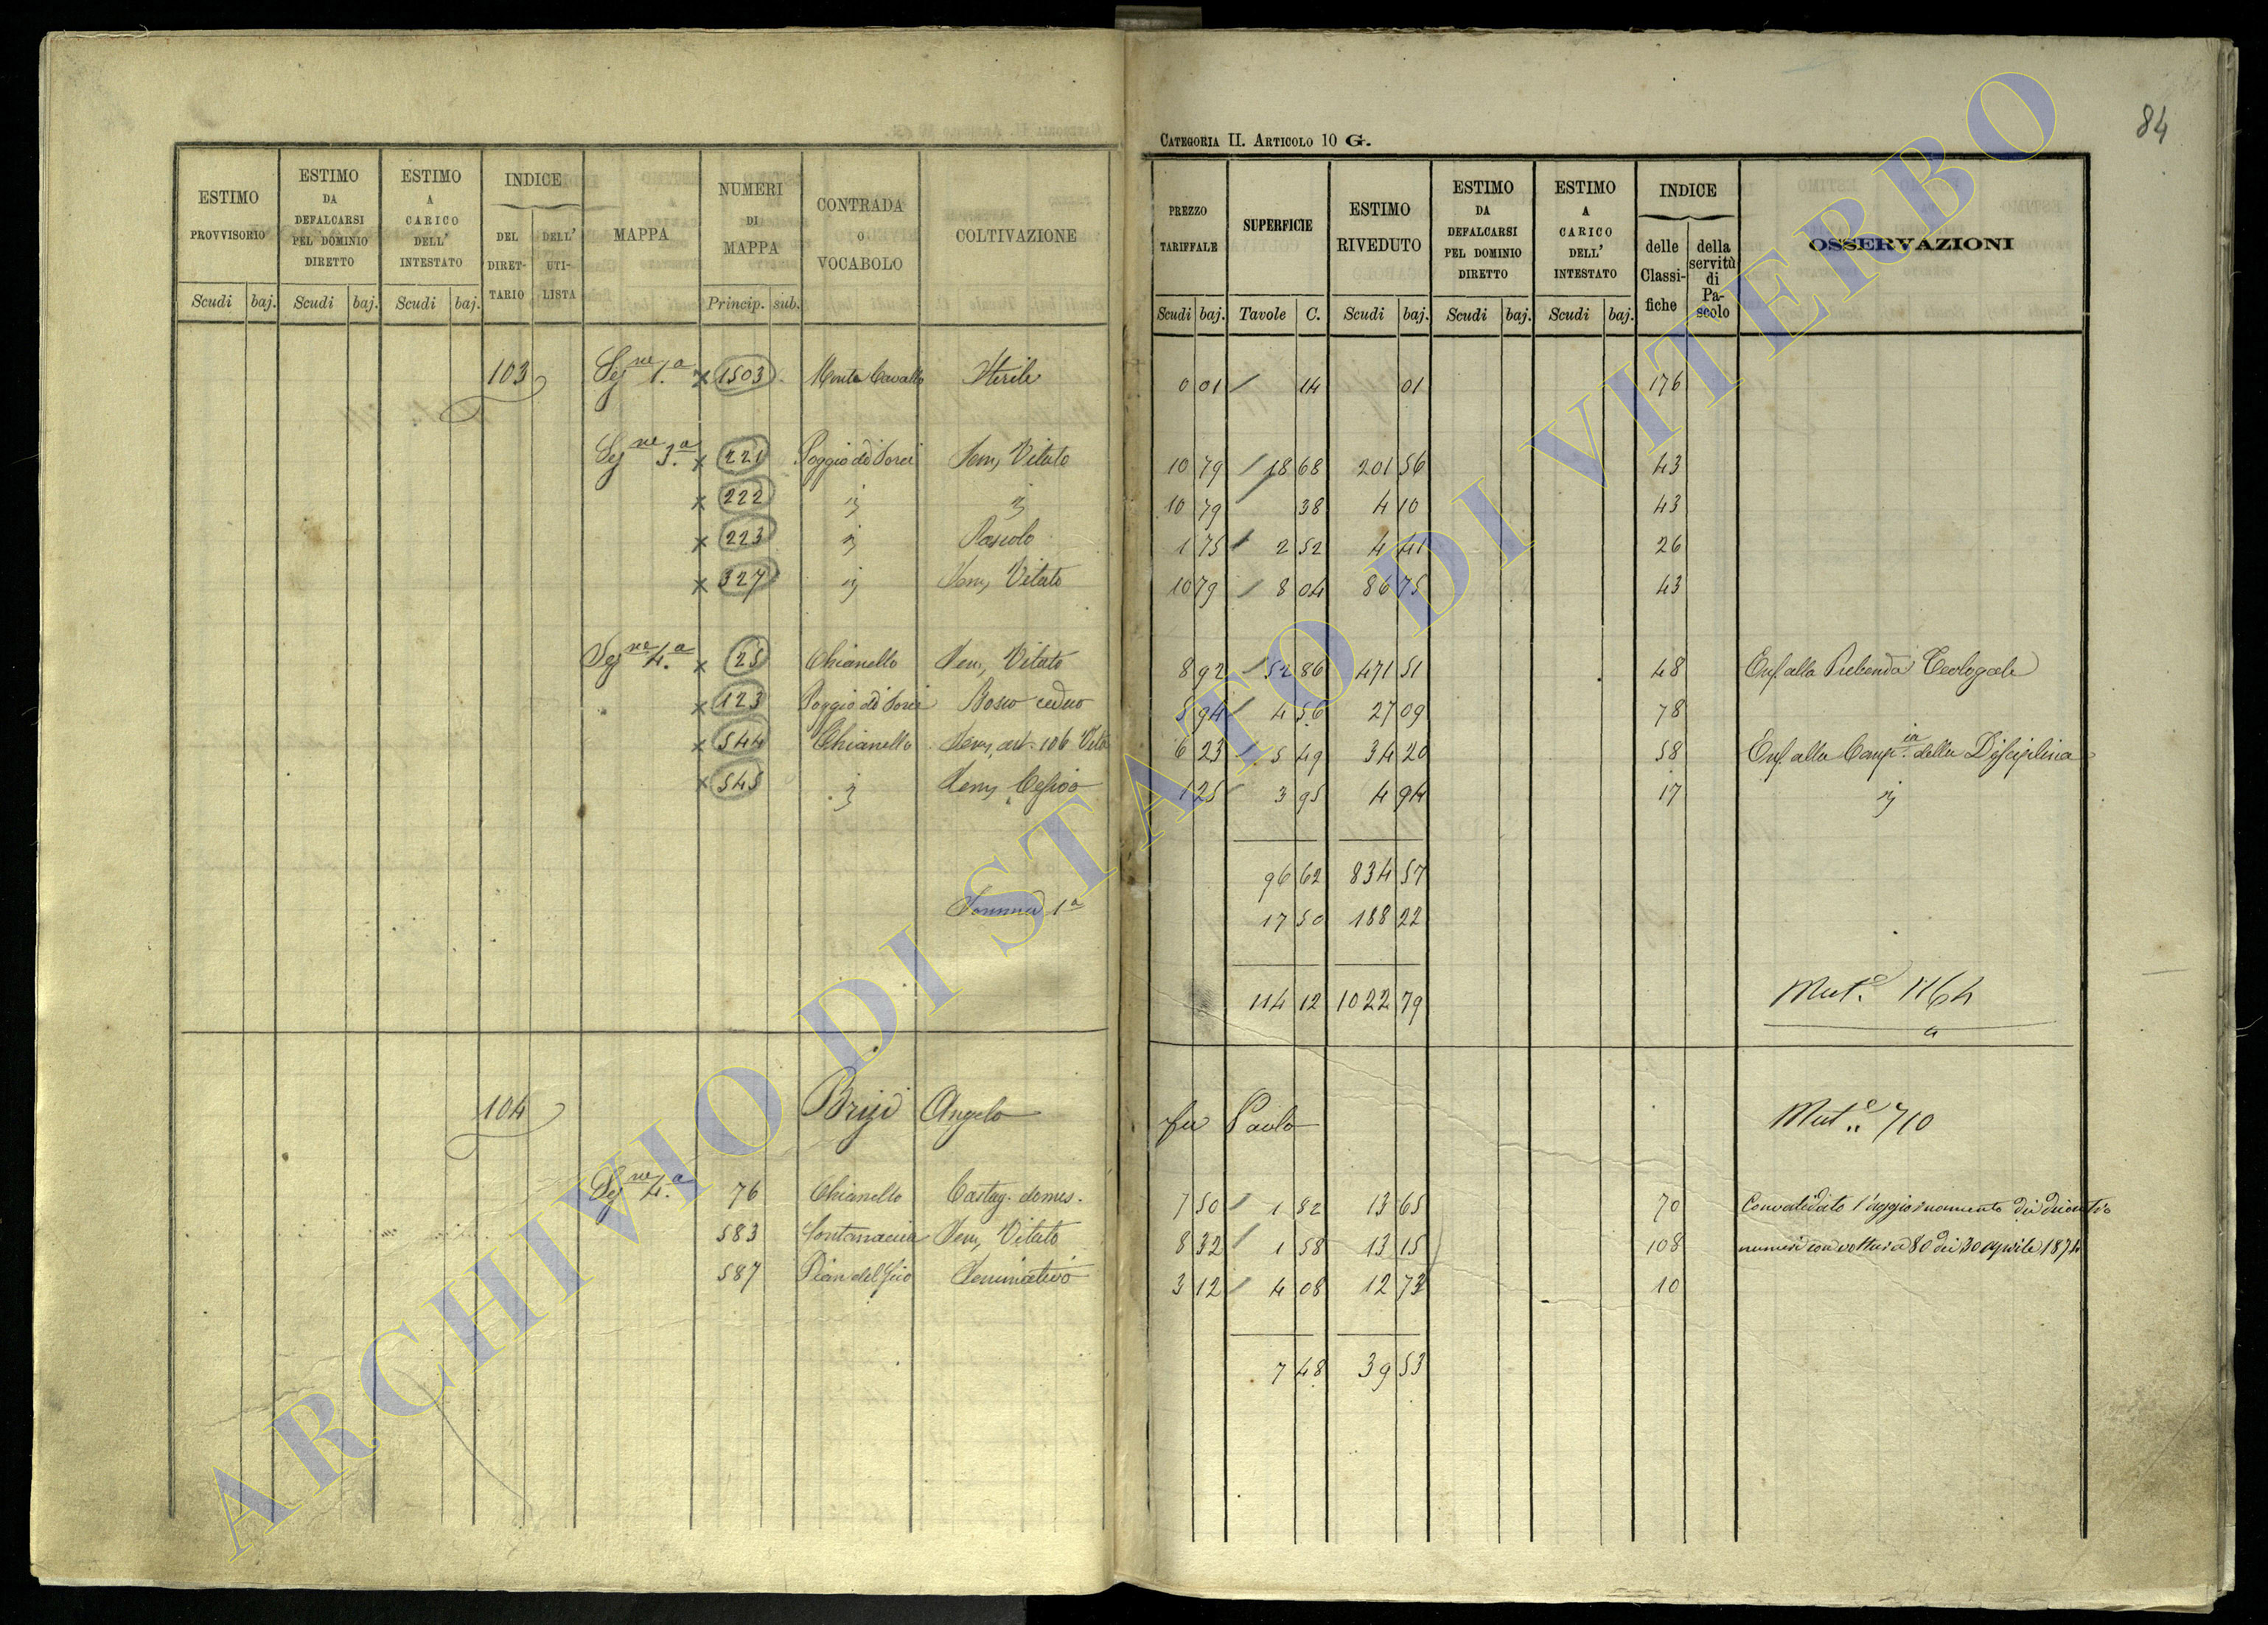 84
CATEGORIA II. ARTICOLO 10 G.
ESTIMO PROVVISORIO Scudi baj.
ESTIMO DA DEFALCARSI PEL DOMINIO DIRETTO Scudi baj.
ESTIMO A CARICO DELL' INTESTATO Scudi baj.
INDICE DEL DIRETTARIO DELL' UTILISTA
MAPPA
NUMERI DI MAPPA Princip. sub.
CONTRADA O VOCABOLO
COLTIVAZIONE
PREZZO TARIFFALE Scudi baj.
SUPERFICIE Tavole C.
ESTIMO RIVEDUTO Scudi baj.
ESTIMO DA DEFALCARSI PEL DOMINIO DIRETTO Scudi baj.
ESTIMO A CARICO DELL' INTESTATO Scudi baj.
INDICE delle Classifiche della servitù di Pascolo
OSSERVAZIONI
103 Segne 1.a x 1503 Monte Cavallo Sterile 0 01 / 14 01 176
Segne 3.a x 221 Poggio di Sorci Sem, Vitato 10 79 / 18 68 201 56 43
x 222 10 79 / 38 4 10 43
x 223 Pascolo 1 75 / 2 52 4 41 26
x 327 Sem, Vitato 10 79 / 8 04 86 75 43
Segne 4.a x 25 Chianello Sem, Vitato 8 92 / 52 86 471 51 48 Enf. alla Prebenda Teologale
x 123 Poggio di Sorci Bosco ceduo 5 94 / 4 56 27 09 78
x 544 Chianello Sem, art. 106 Vito 6 23 / 5 49 34 20 58 Enf. alla Comp.ia della Disciplina
x 545 Sem, Cesivo 1 25 / 3 95 4 94 17
96 62 834 57
Somma 1a 17 50 188 22
114 12 1022 79 Mut.e 1164
104 Brizi Angelo fu Paolo Mut.e 710
Segne 4.a 76 Chianello Castag. domes. 7 50 / 1 82 13 65 70 Convalidato l'aggiornamento dei
583 Fontanaccia Sem, Vitato 8 32 / 1 58 13 15 108 numeri con voltura 80 di 30 aprile 1874
587 Pian del Seminativo 3 12 / 4 08 12 73 10
7 48 39 53
ARCHIVIO DI STATO DI VITERBO